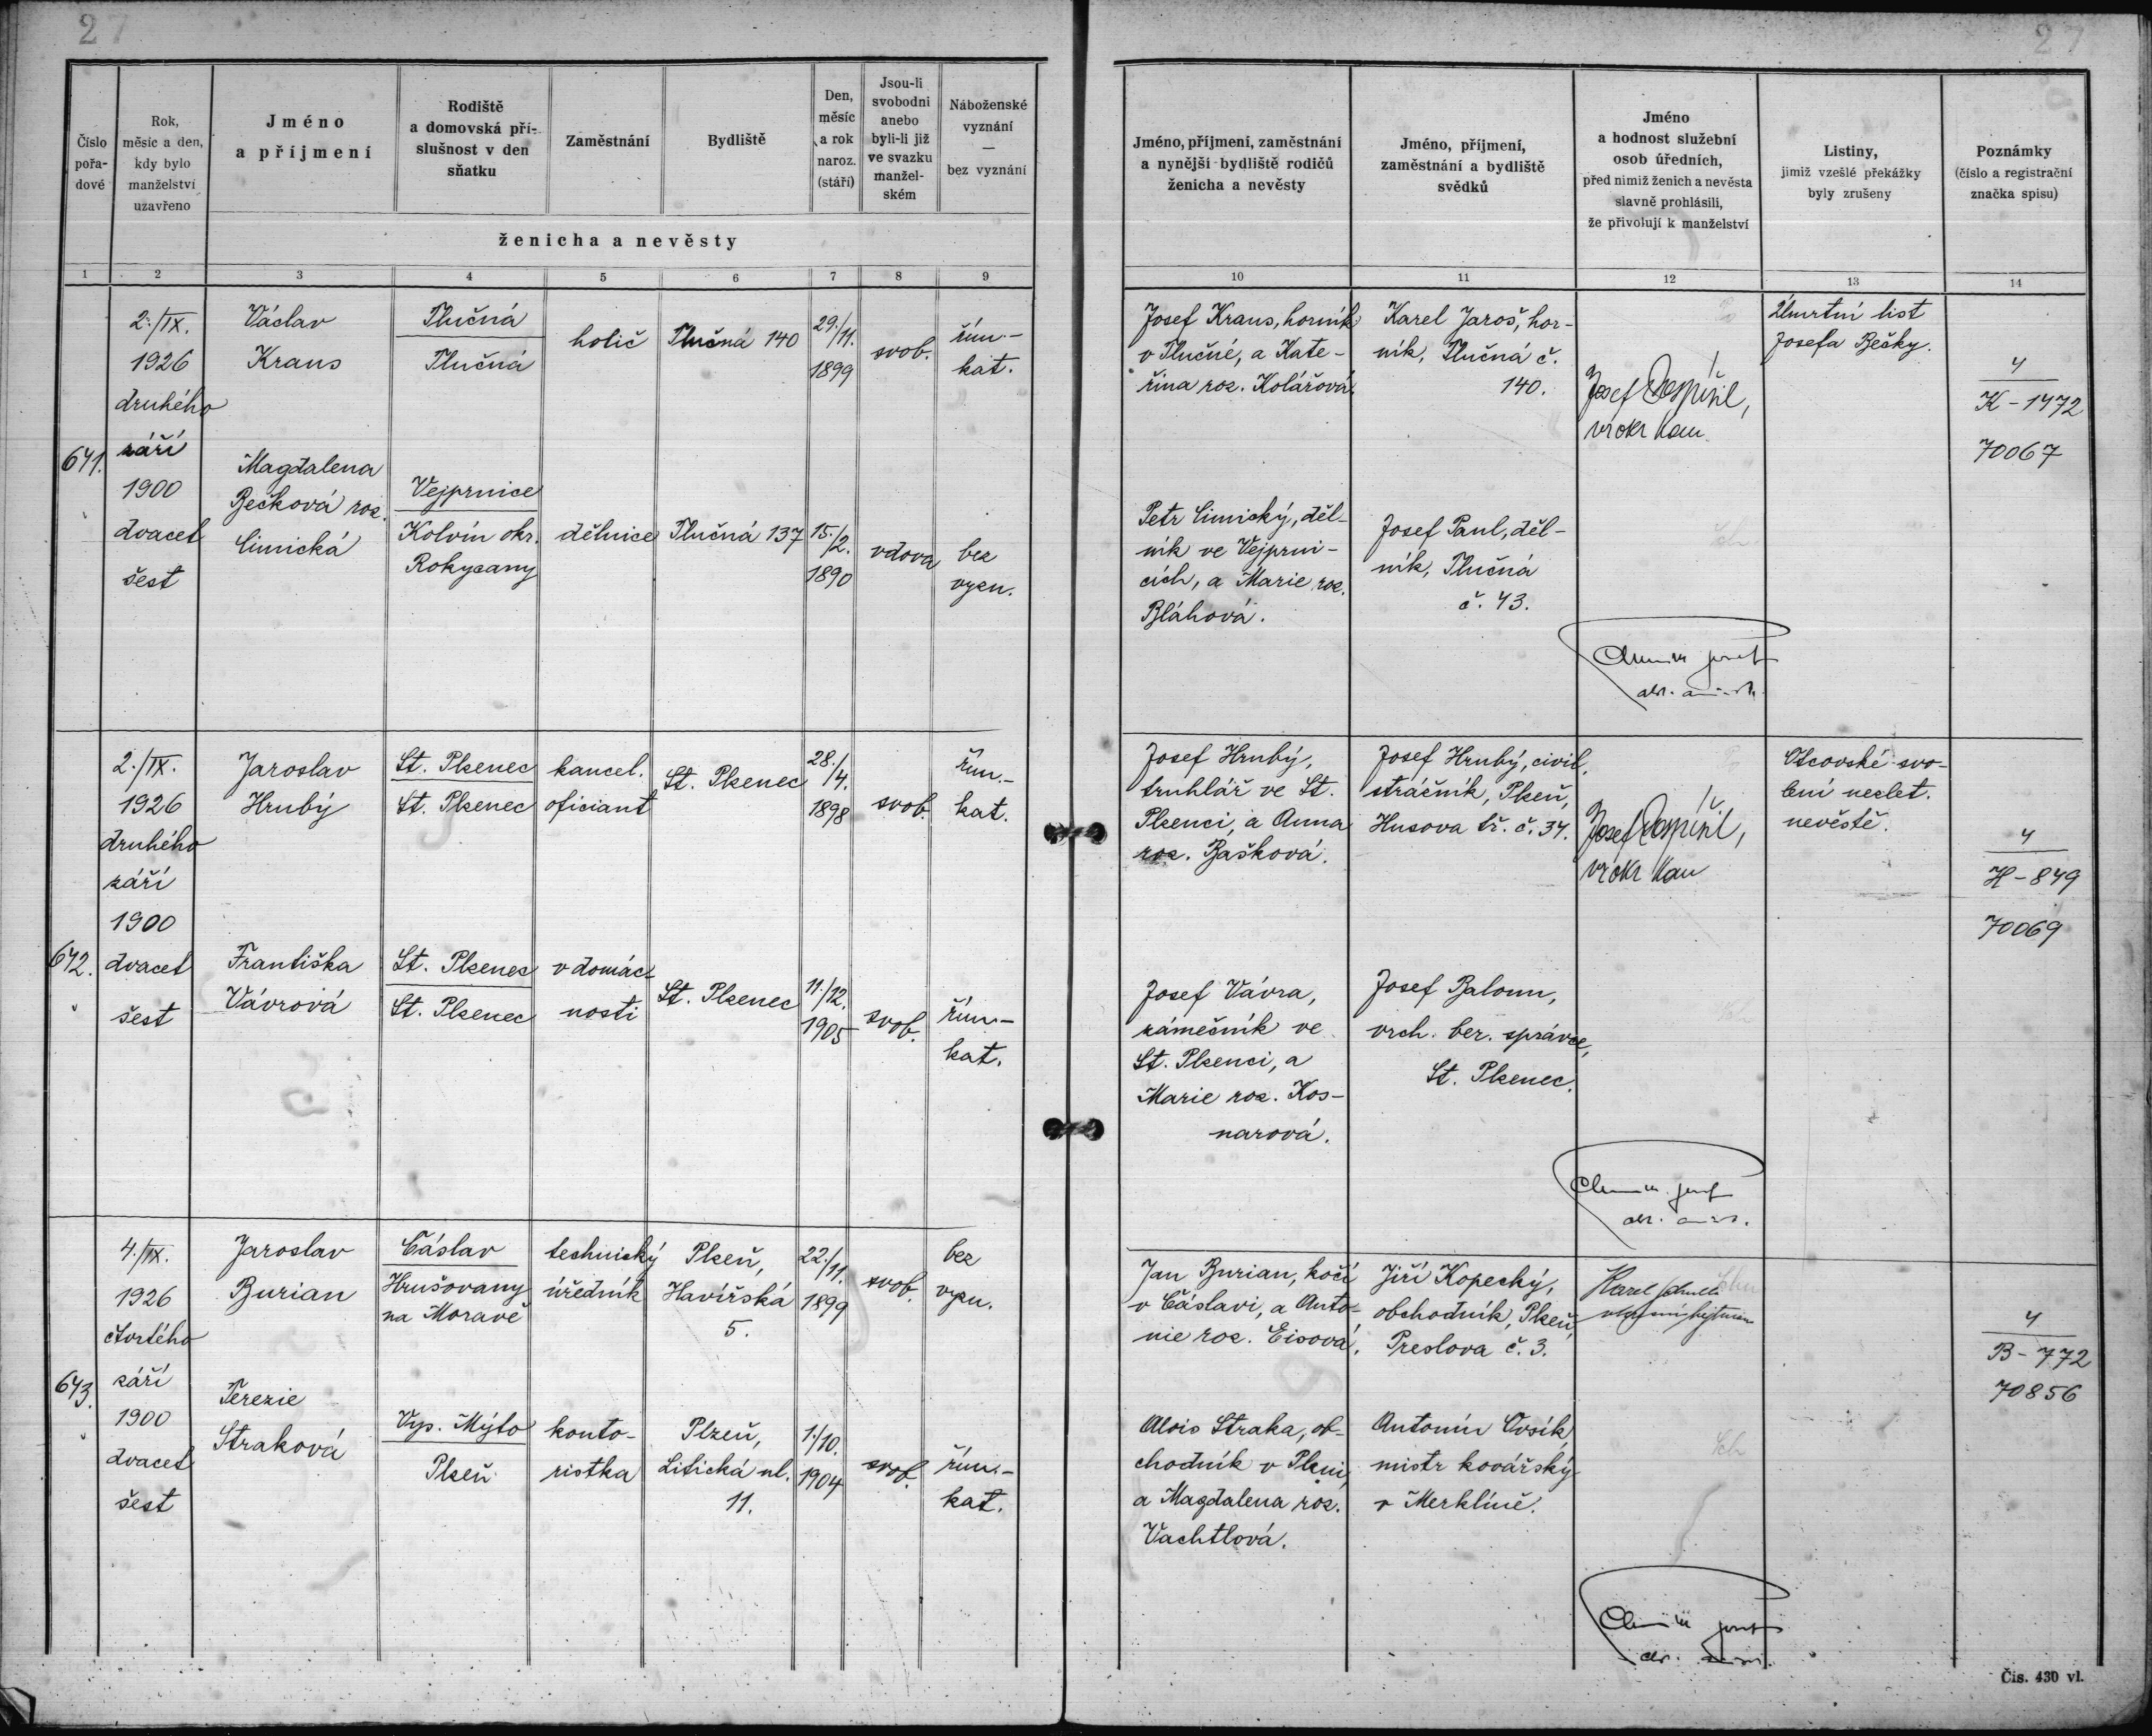 27
27
Číslo pořadové
Rok, měsíc a den, kdy bylo manželství uzavřeno
Jméno a příjmení
Rodiště a domovská příslušnost v den sňatku
Zaměstnání
Bydliště
Den, měsíc a rok naroz. (stáří)
Jsou-li svobodni anebo byli-li již ve svazku manželském
Náboženské vyznání — bez vyznání
ženicha a nevěsty
Jméno, příjmení, zaměstnání a nynější bydliště rodičů ženicha a nevěsty
Jméno, příjmení, zaměstnání a bydliště svědků
Jméno a hodnost služební osob úředních, před nimiž ženich a nevěsta slavně prohlásili, že přivolují k manželství
Listiny, jimiž vzešlé překážky byly zrušeny
Poznámky (číslo a registrační značka spisu)
1 2 3 4 5 6 7 8 9 10 11 12 13 14
641.
2./IX.
1926
druhého
září
1900
dvacet
šest
Václav
Kraus
Tlučná
Tlučná
holič
Tlučná 140
29./11.
1899
svob.
řím.-
kat.
Josef Kraus, horník
v Tlučné, a Kate-
řina roz. Kolářová.
Karel Jaroš, hor-
ník, Tlučná č.
140.
Josef Pospíšil,
Úmrtní list
Josefa Bečky.
4
K-1472
70067
Magdalena
Bečková roz.
Cimická
Vejprnice
Kolvín okr.
Rokycany
dělnice
Tlučná 137
15./2.
1890
vdova
bez
vyzn.
Petr Cimický, děl-
ník ve Vejprni-
cích, a Marie roz.
Bláhová.
Josef Paul, děl-
ník, Tlučná
č. 43.
642.
2./IX.
1926
druhého
září
1900
dvacet
šest
Jaroslav
Hrubý
St. Plzenec
St. Plzenec
kancel.
oficiant
St. Plzenec
28./4.
1898
svob.
řím.-
kat.
Josef Hrubý,
truhlář ve St.
Plzenci, a Anna
roz. Bašková.
Josef Hrubý, civil.
strážník, Plzeň,
Husova tř. č. 34.
Josef Pospíšil,
Otcovské svo-
lení nezlet.
nevěstě.
4
H-849
70069
Františka
Vávrová
St. Plzenec
St. Plzenec
v domác-
nosti
St. Plzenec
11./12.
1905
svob.
řím.-
kat.
Josef Vávra,
zámečník ve
St. Plzenci, a
Marie roz. Kos-
narová.
Josef Baloun,
vrch. ber. správce,
St. Plzenec.
643.
4./IX.
1926
čtvrtého
září
1900
dvacet
šest
Jaroslav
Burian
Čáslav
Hrušovany
na Moravě
technický
úředník
Plzeň,
Havířská
5.
22./11.
1899
svob.
bez
vyzn.
Jan Burian, kočí
v Čáslavi, a Anto-
nie roz. Eisová.
Jiří Kopecký,
obchodník, Plzeň,
Preslova č. 3.
Karel
4
B-772
70856
Terezie
Straková
Vys. Mýto
Plzeň
konto-
ristka
Plzeň,
Litická ul.
11.
1./10.
1904
svob.
řím.-
kat.
Alois Straka, ob-
chodník v Plzni,
a Magdalena roz.
Vachtlová.
Antonín Ovsík,
mistr kovářský
v Merklíně.
Čis. 430 vl.